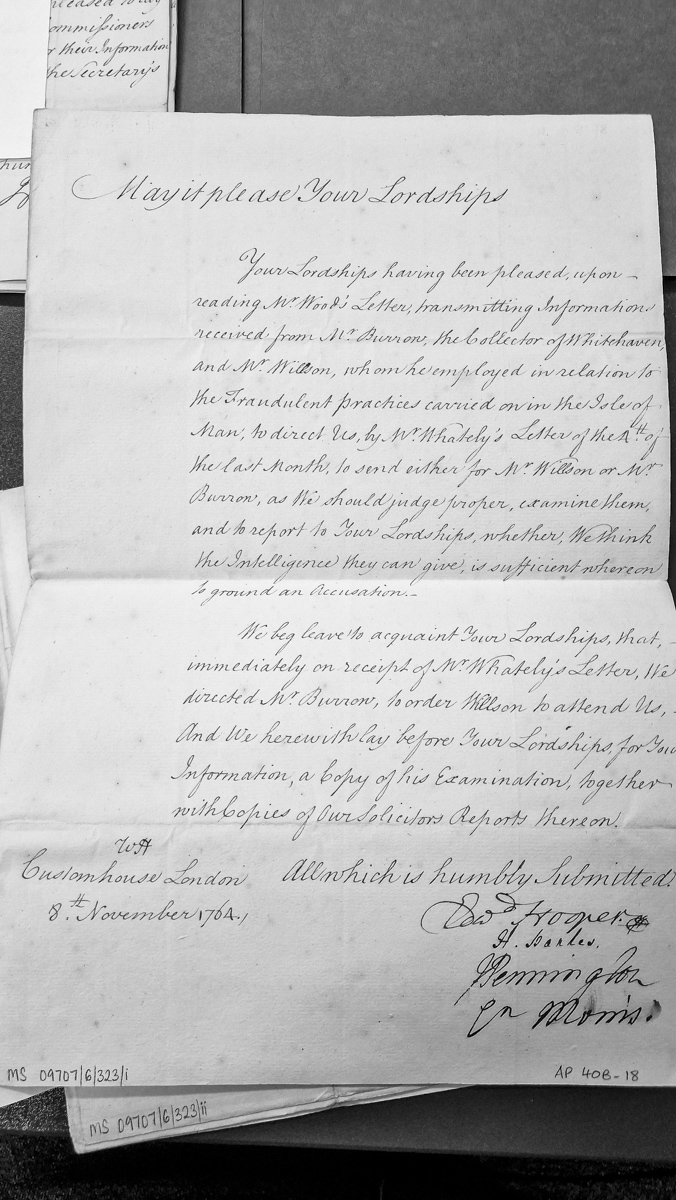 pleased to lay
Commissioners
r their Information
the Secretary's
May it please Your Lordships
Your Lordships having been pleased, upon
reading Mr. Wood's Letter, transmitting Information
received from Mr. Burrow, the Collector of Whitehaven,
and Mr. Willson, whom he employed in relation to
the Fraudulent Practices carried on in the Isle of
Man, to direct Us, by Mr. Whately's Letter of the 4th of
the last Month, to send either for Mr. Willson or Mr.
Burrow, as We should judge proper, examine them,
and to report to Your Lordships, whether, We think
the Intelligence they can give, is sufficient whereon
to ground an Accusation.
We beg leave to acquaint Your Lordships, that,
immediately on receipt of Mr. Whately's Letter, We
directed Mr. Burrow, to order Willson to attend Us,
And We herewith lay before Your Lordships, for Your
Information, a Copy of his Examination, together
with Copies of Our Solicitors Reports thereon.
All which is humbly Submitted.
WH
Customhouse London
8th November 1764.
Edwd Hooper
H. Banks.
J Pennington
Cn Morris.
MS 09707/6/323/i
AP 40B-18
MS 09707/6/323/ii